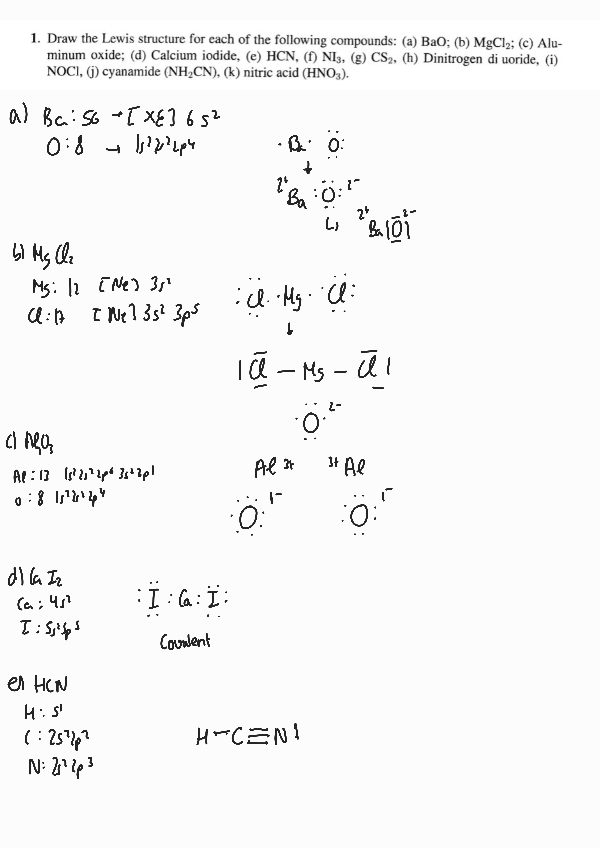 1. Draw the Lewis structure for each of the following compounds: (a) BaO; (b) MgCl₂; (c) Alu-
minum oxide; (d) Calcium iodide, (e) HCN, (f) NI₃, (g) CS₂, (h) Dinitrogen di uoride, (i)
NOCl, (j) cyanamide (NH₂CN), (k) nitric acid (HNO₃).
a) Ba: 56 → [Xe] 6s²
O: 8 → 1s² 2s² 2p⁴
· Ba · O
↓
2+ Ba : O : 2-
↳ 2+ Ba |O| 2-
b) MgCl₂
Mg: 12 [Ne] 3s²
Cl: 17 [Ne] 3s² 3p⁵
: Cl · Mg · Cl :
↓
| Cl — Mg — Cl |
c) Al₂O₃
Al: 13 1s² 2s² 2p⁶ 3s² 3p¹
O: 8 1s² 2s² 2p⁴
· O : 2-
Al 3+ 3+ Al
· O : 1- · O : 1-
d) CaI₂
Ca: 4s²
I: 5s² 5p⁵
: I : Ca : I :
Covalent
e) HCN
H: s¹
C: 2s² 2p²
N: 2s² 2p³
H — C ≡ N |